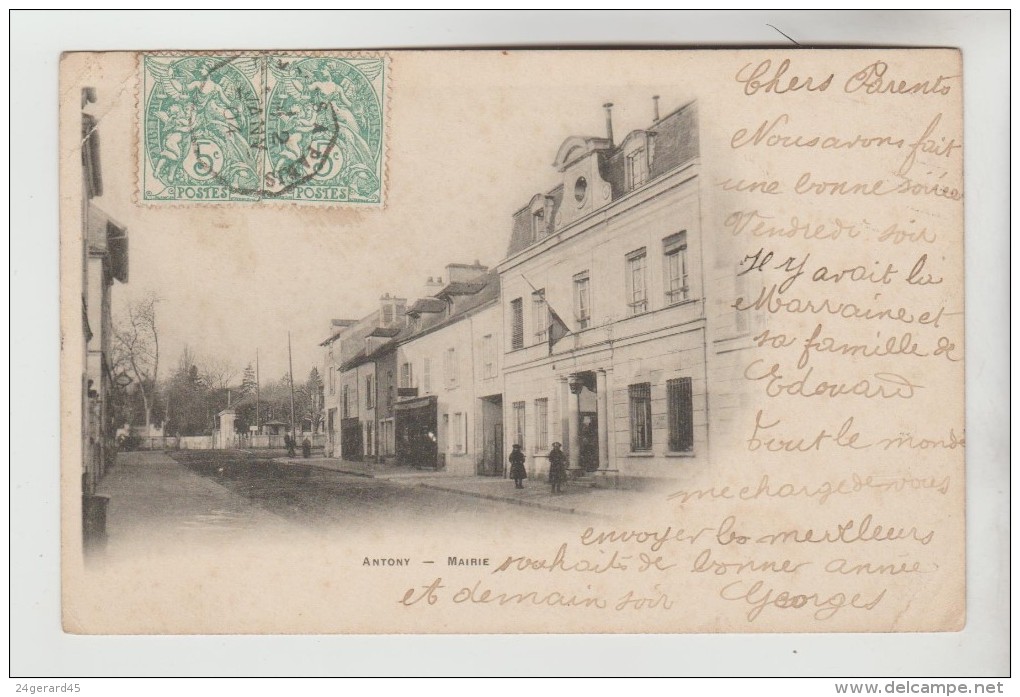 5c
POSTES
5c
POSTES
PARIS
Chers Parents
Nous avons fait
une bonne soirée
Vendredi soir
Il y avait la
Marraine et
sa famille de
Edouard
Tout le monde
me charge de vous
envoyer les meilleurs
souhaits de bonne année
et demain soir Georges
ANTONY — MAIRIE
24gerard45
www.delcampe.net